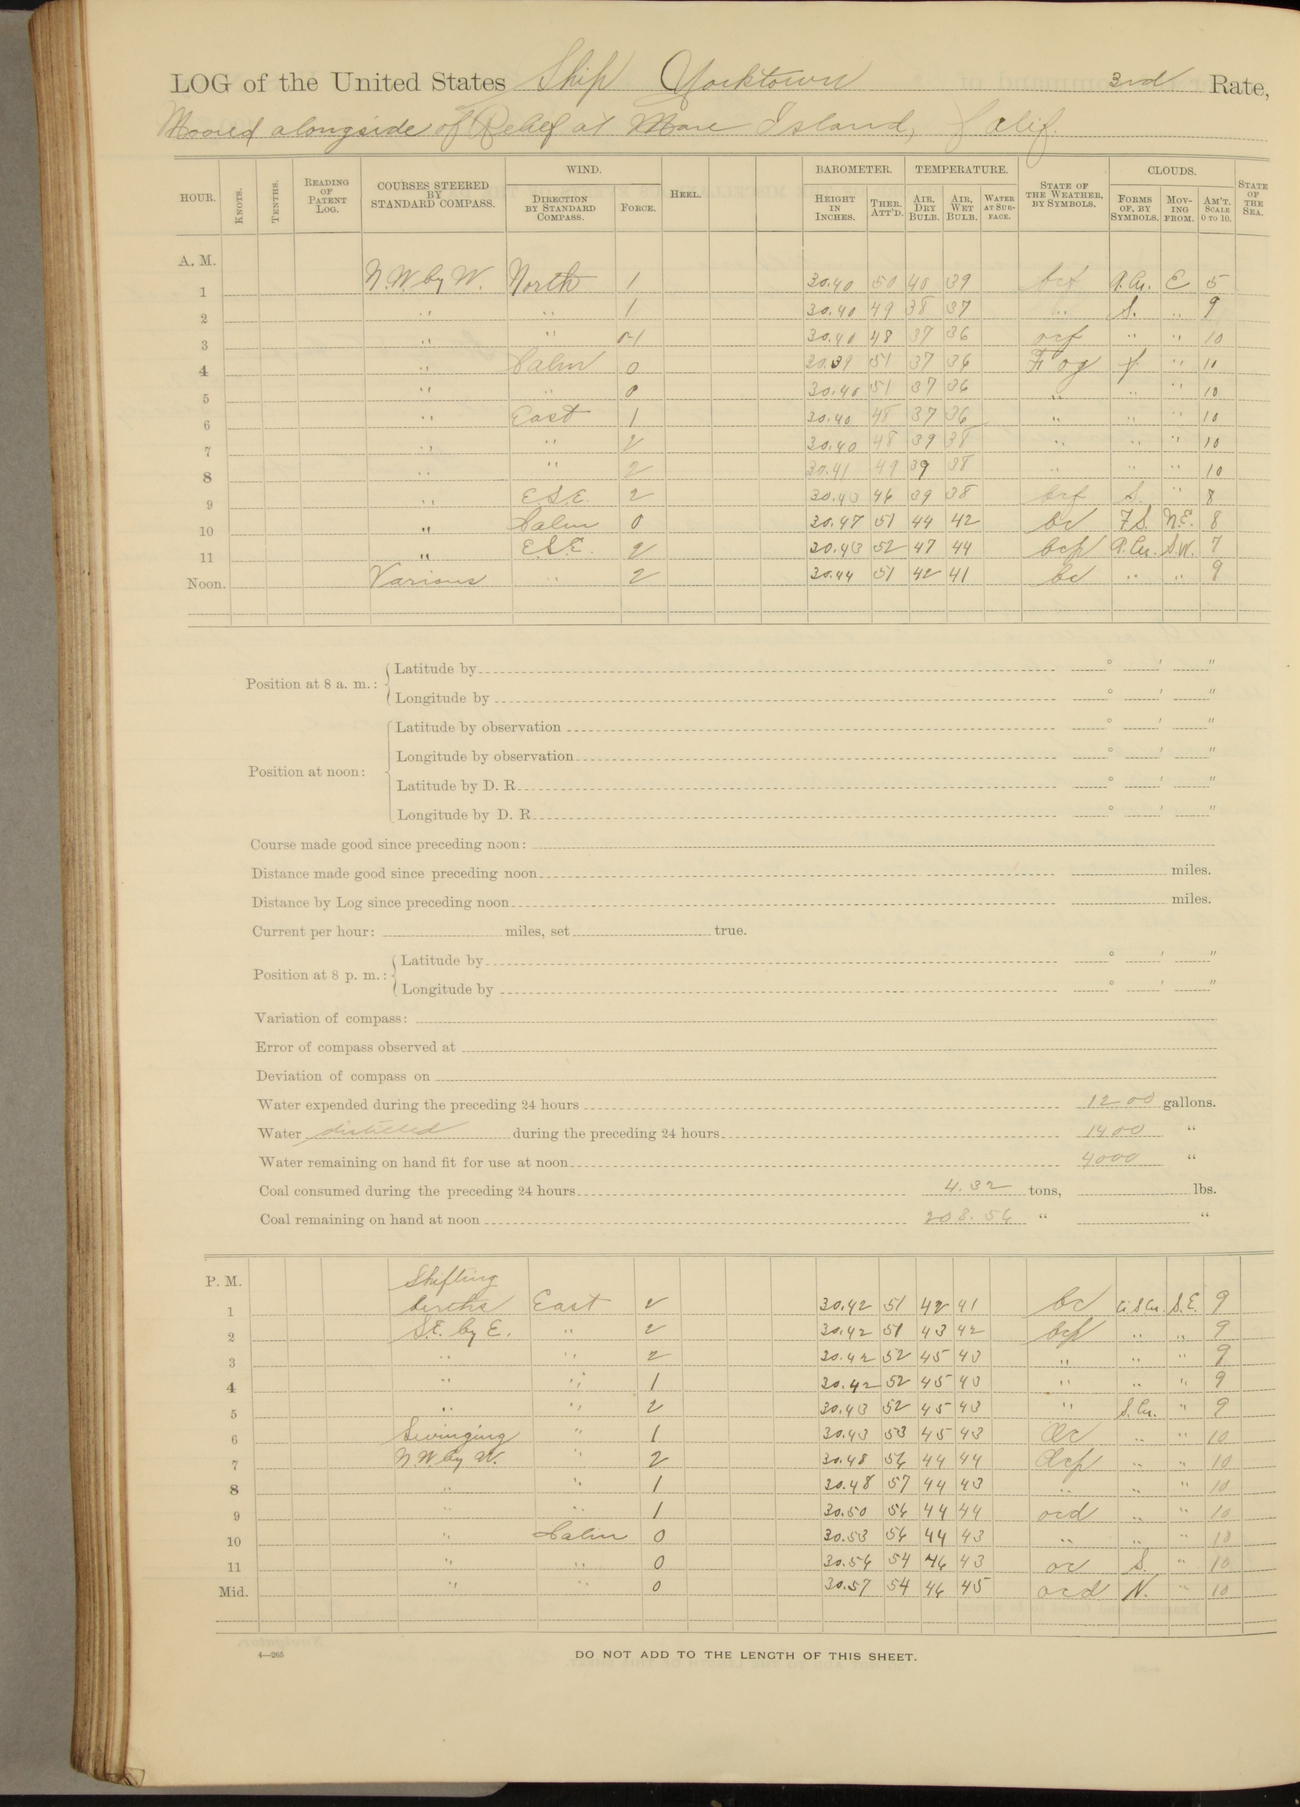 LOG of the United States Ship Yorktown 3rd Rate,
Moored alongside of Relief at Mare Island, Calif.
HOUR. KNOTS. TENTHS. READING OF PATENT LOG. COURSES STEERED BY STANDARD COMPASS. WIND. DIRECTION BY STANDARD COMPASS. FORCE. HEEL. BAROMETER. HEIGHT IN INCHES. THER. ATT'D. TEMPERATURE. AIR, DRY BULB. AIR, WET BULB. WATER AT SURFACE. STATE OF THE WEATHER, BY SYMBOLS. CLOUDS. FORMS OF, BY SYMBOLS. MOVING FROM. AM'T. SCALE 0 TO 10. STATE OF THE SEA.
A. M.
1 N.W. by W. North 1 30.40 50 40 39 bcf A.Cu. E 5
2 " " 1 30.40 49 38 37 " S. " 9
3 " " 0-1 30.40 48 37 36 ocf " " 10
4 " Calm 0 30.39 51 37 36 Fog f " 10
5 " " 0 30.40 51 37 36 " " " 10
6 " East 1 30.40 48 37 36 " " " 10
7 " " 2 30.40 48 39 38 " " " 10
8 " " 2 30.41 49 39 38 " " " 10
9 " E.S.E. 2 30.43 46 39 38 bcf S. " 8
10 " Calm 0 30.47 51 44 42 bc F.S. N.E. 8
11 " E.S.E. 2 30.43 52 47 44 bcp A.Cu. S.W. 7
Noon. Various " 2 30.44 51 42 41 bc " " 9
Position at 8 a. m.: Latitude by ° ′ ″
Longitude by ° ′ ″
Position at noon: Latitude by observation ° ′ ″
Longitude by observation ° ′ ″
Latitude by D. R. ° ′ ″
Longitude by D. R. ° ′ ″
Course made good since preceding noon:
Distance made good since preceding noon miles.
Distance by Log since preceding noon miles.
Current per hour: miles, set true.
Position at 8 p. m.: Latitude by ° ′ ″
Longitude by ° ′ ″
Variation of compass:
Error of compass observed at
Deviation of compass on
Water expended during the preceding 24 hours 1200 gallons.
Water distilled during the preceding 24 hours 1400 "
Water remaining on hand fit for use at noon 4000 "
Coal consumed during the preceding 24 hours 4.32 tons, lbs.
Coal remaining on hand at noon 208.56 " "
P. M. Shifting
1 berths East 2 30.42 51 42 41 bc Ci.S.Cu. S.E. 9
2 S.E. by E. " 2 30.42 51 43 42 bcp " " 9
3 " " 2 30.42 52 45 43 " " " 9
4 " " 1 30.42 52 45 43 " " " 9
5 " " 2 30.43 52 45 43 " S.Cu. " 9
6 Swinging " 1 30.43 53 45 43 Oc " 10
7 N.W. by W. " 2 30.48 56 44 44 Ocp " " 10
8 " " 1 30.48 57 44 43 " " " 10
9 " " 1 30.50 56 44 44 ocd " " 10
10 " Calm 0 30.53 56 44 43 " " " 10
11 " " 0 30.56 54 46 43 oc S. " 10
Mid. " " 0 30.57 54 46 45 ocd N. " 10
4—265 DO NOT ADD TO THE LENGTH OF THIS SHEET.